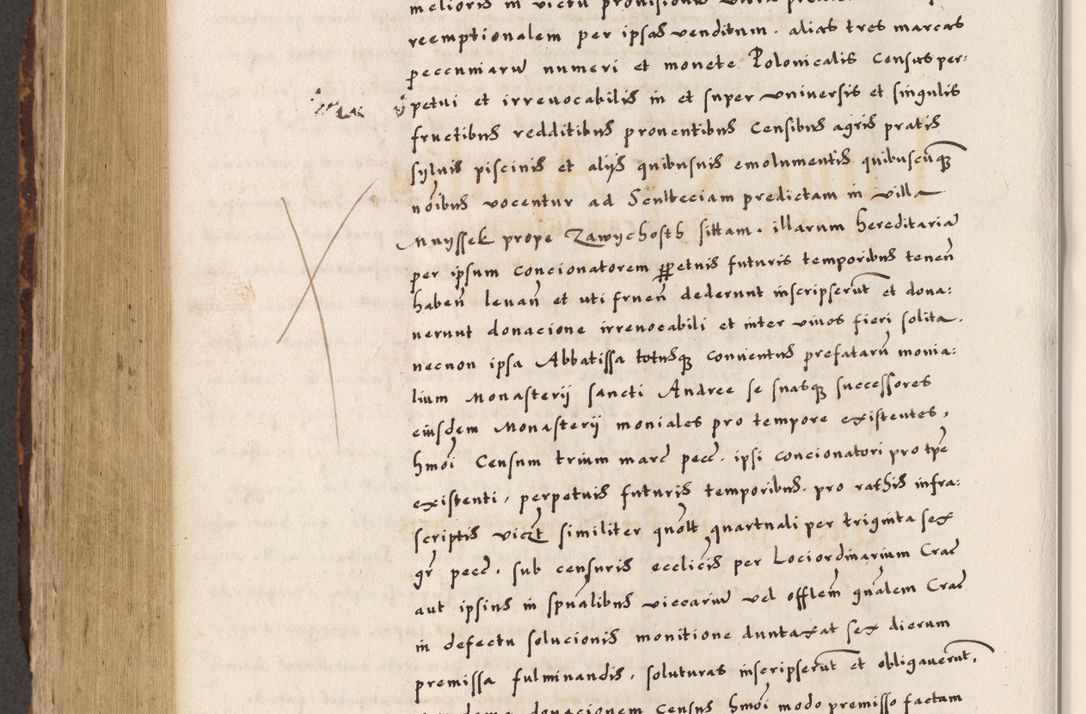 melioris in victu provisionis
reemptionalem per ipsas venditum. alias tres marcas
pecuniarū numeri et monete Polonicalis Census per:
petui et irrevocabilis in et super universis et singulis
fructibus redditibus proventibus Censibus agris pratis
sylvis piscinis et alijs quibusvis emolumentis quibuscūq
nōibus vocentur ad Sculteciam predictam in villa
Muyssek prope Zawychosth sittam. illarum hereditaria
per ipsum Concionatorem ppetuis futuris temporibus tenen̄
haben̄ levan̄ et uti fruen̄ dederunt inscripserūt et dona:
verunt donacione irrevocabili et inter vivos fieri solita.
necnon ipsa Abbatissa totusq Conventus prefatarū monia:
lium Monasterij sancti Andree se suasq successores
eiusdem Monasterij moniales pro tempore existentes,
hmōi Censum trium marc̄ pecc̄. ipsi concionatori pro tpē
existenti, perpetuis futuris temporibus. pro rathis infra:
scriptis vicꝫt similiter quolt quartuali per triginta sex
gr̄ pecc̄. sub censuris ecclicis per Lociordinarium Crac̄
aut ipsius in spūalibus viccariū vel offlem gnālem Crac̄
in defectu solucionis monitione duntaxat sex dierum
premissa fulminandis, soluturas inscripserūt et obligaverūt,
donacionem Census hmōi modo premisso factam